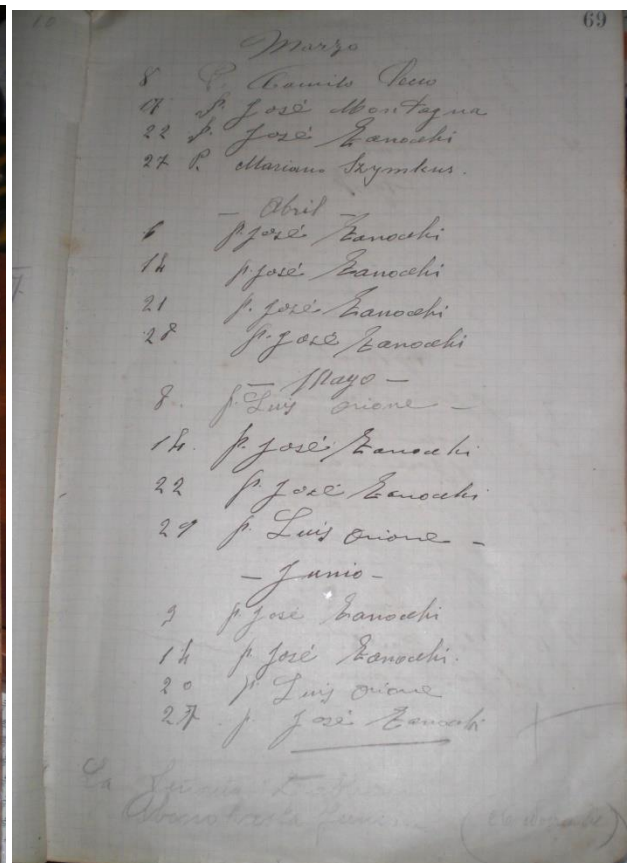 69
Marzo
8 P. Camilo Secco
17 P. José Montagna
22 P. José Zanocchi
27 P. Mariano Szymkus.
– Abril –
6 P. José Zanocchi
14 P. José Zanocchi
21 P. José Zanocchi
28 P. José Zanocchi
– Mayo –
8. P. Luis Orione –
14. P. José Zanocchi
22 P. José Zanocchi
29 P. Luis Orione –
– Junio –
3 P. José Zanocchi
14 P. José Zanocchi.
20 P. Luis Orione
27. P. José Zanocchi
La